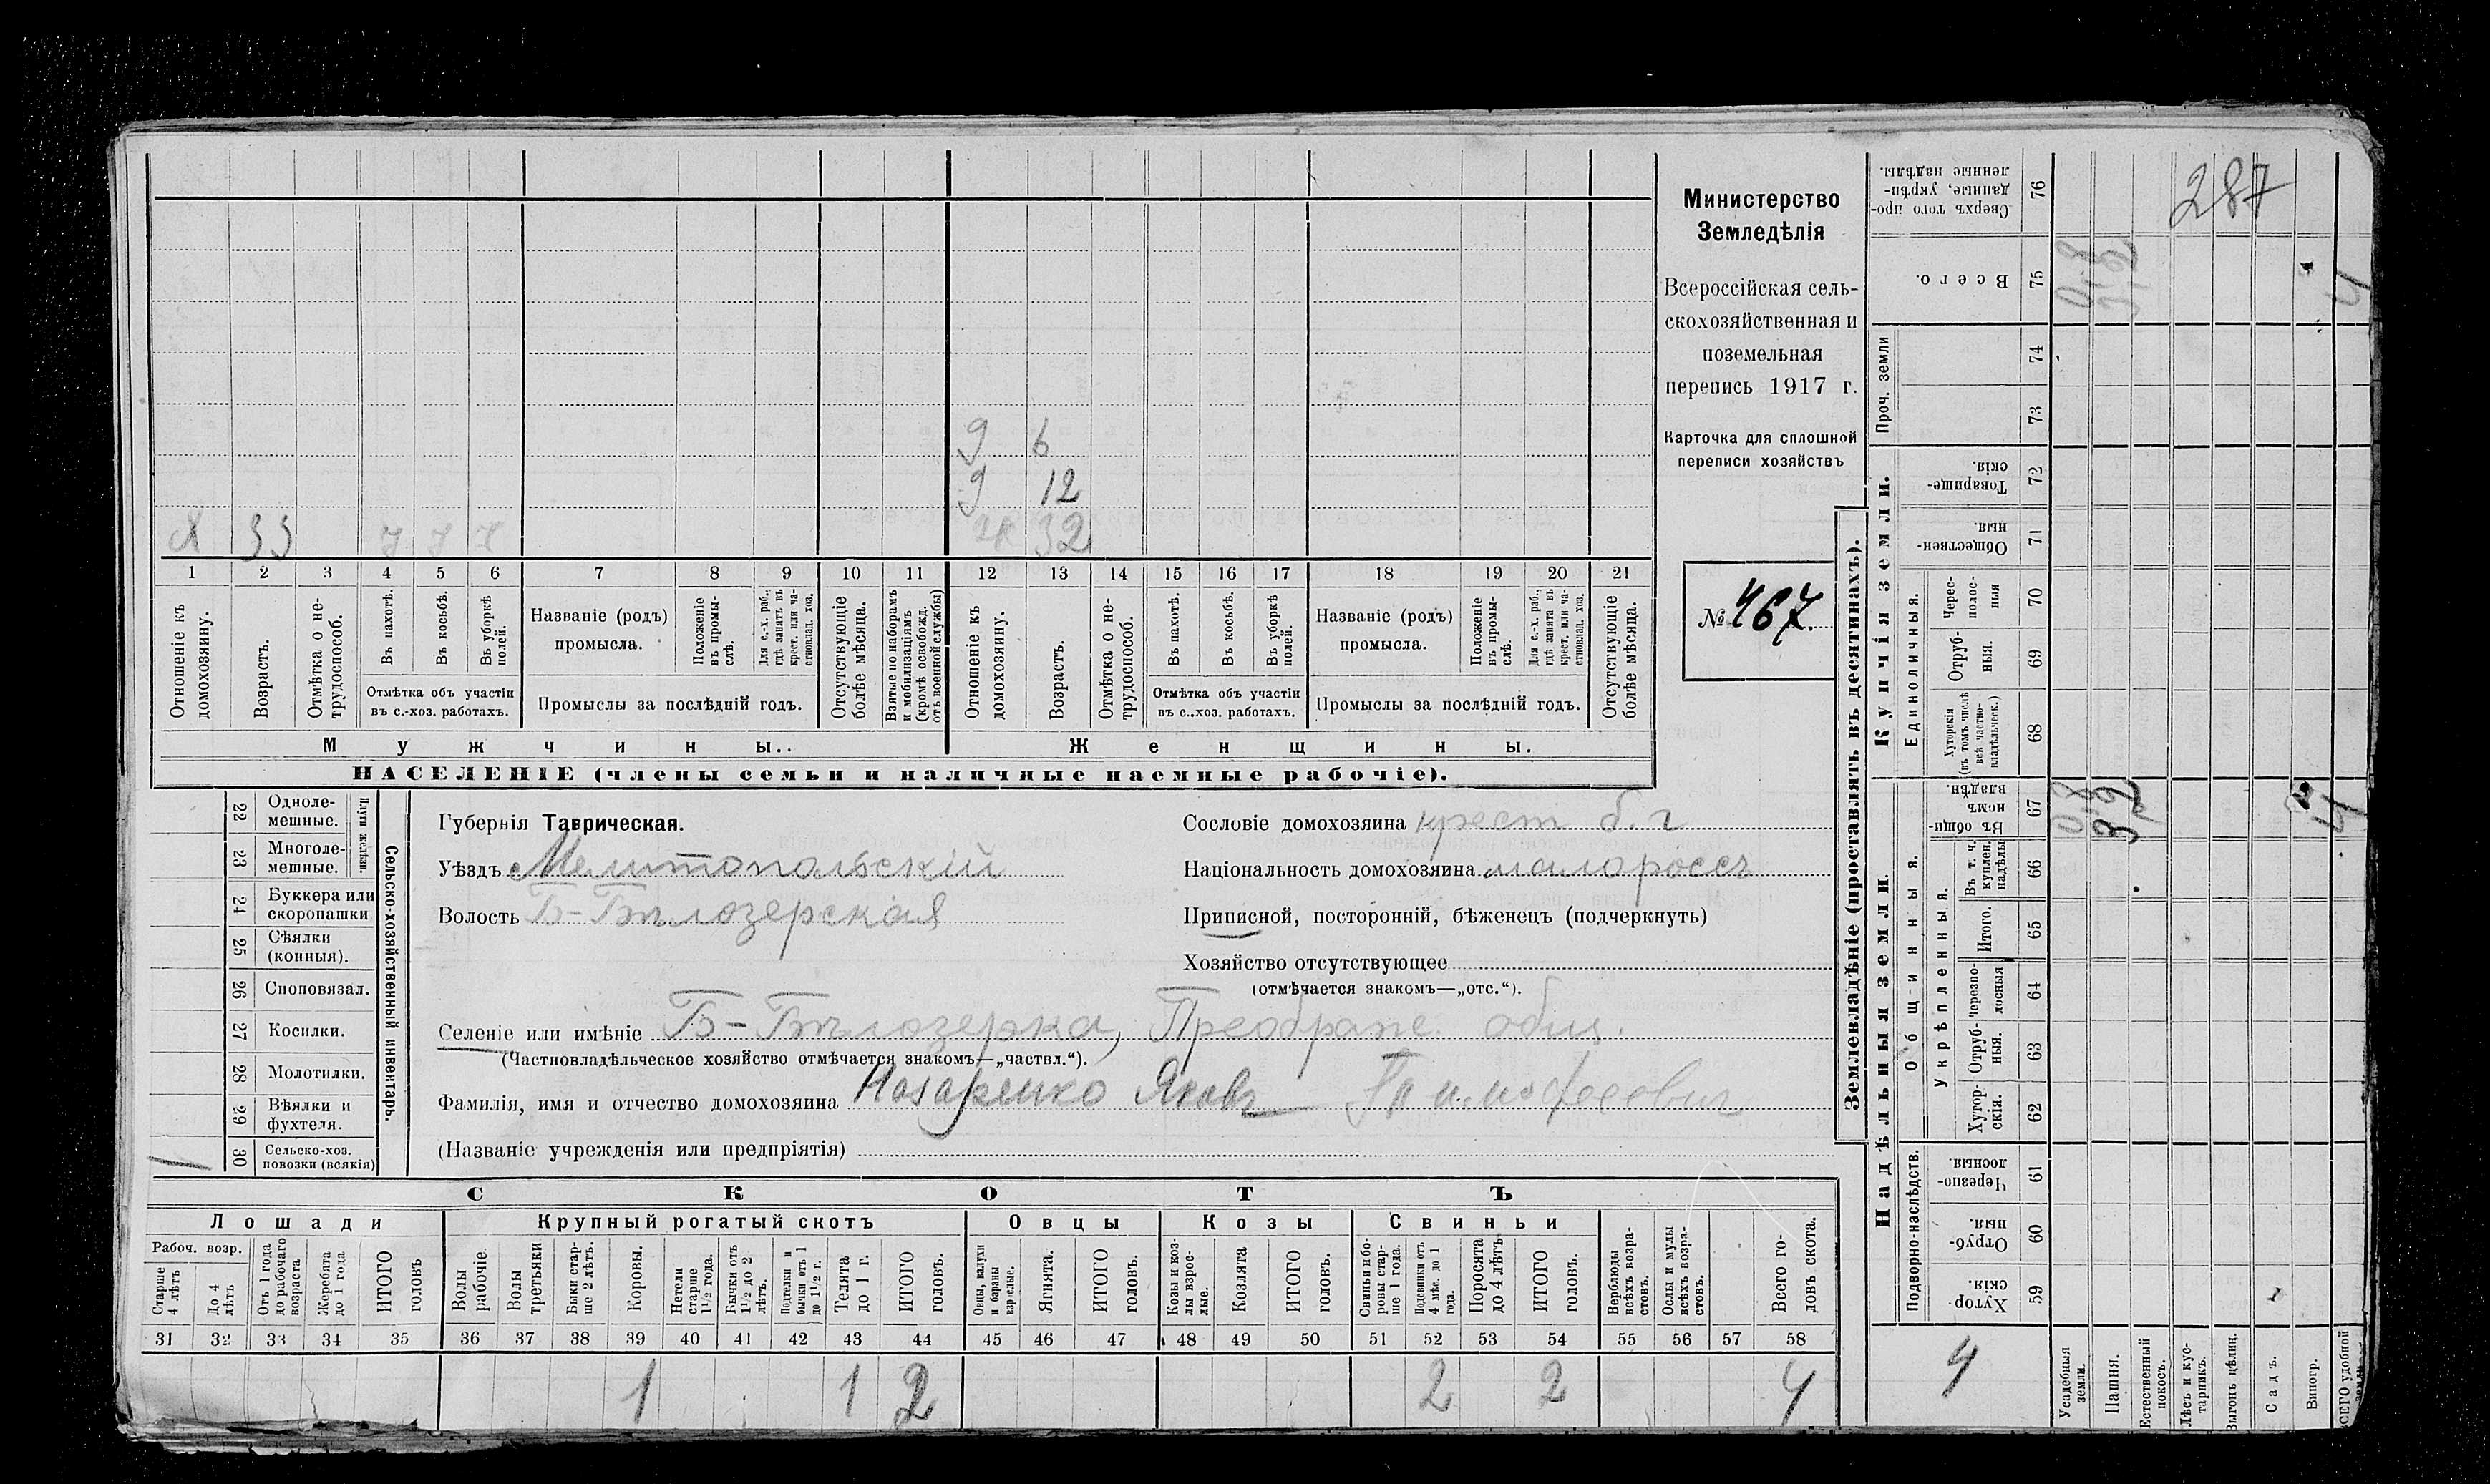 287
Министерство
Земледѣлія
Всероссійская сель-
скохозяйственная и
поземельная
перепись 1917 г.
Карточка для сплошной
переписи хозяйствъ
№ 467.
9 6
9 12
33 32
1 2 3 4 5 6 7 8 9 10 11 12 13 14 15 16 17 18 19 20 21
Отношеніе къ домохозяину.
Возрастъ.
Отмѣтка о не-трудоспособ.
Въ пахотѣ.
Въ косьбѣ.
Въ уборкѣ полей.
Отмѣтка объ участіи
въ с.-хоз. работахъ.
Названіе (родъ)
промысла.
Положеніе въ промы-слѣ.
Для с.-х. раб., гдѣ занятъ въ крест. или ча-стновлад. хоз.
Промыслы за послѣдній годъ.
Отсутствующіе болѣе мѣсяца.
Взятые по наборамъ и мобилизаціямъ (кромѣ освобожд. отъ военной службы)
Отношеніе къ домохозяину.
Возрастъ.
Отмѣтка о не-трудоспособ.
Въ пахотѣ.
Въ косьбѣ.
Въ уборкѣ полей.
Отмѣтка объ участіи
въ с..хоз. работахъ.
Названіе (родъ)
промысла.
Положеніе въ промы-слѣ.
Для с.-х. раб., гдѣ занята въ крест. или ча-стновлад. хоз.
Промыслы за послѣдній годъ.
Отсутствующіе болѣе мѣсяца.
Мужчины..
Женщины.
НАСЕЛЕНІЕ (члены семьи и наличные наемные рабочіе).
22 Одноле-мешные.
23 Многоле-мешные.
Плуги желѣзн.
24 Буккера или скоропашки
25 Сѣялки (конныя).
26 Сноповязал.
27 Косилки.
28 Молотилки.
29 Вѣялки и фухтеля.
30 Сельско-хоз. повозки (всякія)
1
Сельско-хозяйственный инвентарь.
Губернія Таврическая.
Уѣздъ Мелитопольскій
Волость Б-Бѣлозерская
Сословіе домохозяина крест б. г
Національность домохозяина малороссъ
Приписной, посторонній, бѣженецъ (подчеркнуть)
Хозяйство отсутствующее
(отмѣчается знакомъ—„отс.“).
Селеніе или имѣніе Б-Бѣлозерка, Преображе. общ.
(Частновладѣльческое хозяйство отмѣчается знакомъ—„частвл.“).
Фамилія, имя и отчество домохозяина Назаренко Яковъ Тимофеевич
(Названіе учрежденія или предпріятія)
СКОТЪ
Лошади
Крупный рогатый скотъ
Овцы
Козы
Свиньи
Рабоч. возр.
Старше 4 лѣтъ
До 4 лѣтъ
Отъ 1 года до рабочаго возраста
Жеребята до 1 года
ИТОГО головъ
Волы рабочіе
Волы третьяки
Быки стар-ше 2 лѣтъ.
Коровы.
Нетели старше 1½ года.
Бычки отъ 1½ до 2 лѣтъ.
Подтелки и бычки отъ 1 до 1½ г.
Телята до 1 г.
ИТОГО головъ.
Овцы, валухи и бараны взрослые.
Ягнята.
ИТОГО головъ.
Козы и коз-лы взрос-лые.
Козлята
ИТОГО головъ.
Свиньи и бо-ровы стар-ше 1 года.
Подсвинки отъ 4 мѣс. до 1 года.
Поросята до 4 лѣтъ
ИТОГО головъ.
Верблюды всѣхъ возра-стовъ.
Ослы и мулы всѣхъ возра-стовъ.
Всего го-ловъ скота.
31 32 33 34 35 36 37 38 39 40 41 42 43 44 45 46 47 48 49 50 51 52 53 54 55 56 57 58
1 1 2 2 2 4
Землевладѣніе (проставлять въ десятинахъ).
Купчія земли.
Надѣльныя земли.
Сверхъ того про-данные, укрѣп-ленные надѣлы. 76
Всего. 75
Проч. земли
74
73
Товарище-скія. 72
Обществен-ныя. 71
Единоличныя.
Черес-полос-ныя 70
Отруб-ныя. 69
Хуторскія (въ томъ числѣ всѣ частно-владѣльческ.) 68
Общинныя.
Въ общи-номъ владѣн. 67
Укрѣпленныя.
Въ т. ч. куплен. надѣлы 66
Итого. 65
Черезпо-лосныя 64
Отруб-ныя. 63
Хутор-скія. 62
Подворно-наслѣдств.
Черезпо-лосныя. 61
Отруб-ныя. 60
Хутор-скія. 59
0,8 3,2 4
0,8 3,2 4
4
Усадебныя земли.
Пашня.
Естественный покосъ.
Лѣсъ и кус-тарникъ.
Выгонъ цѣлин.
Садъ.
Виногр.